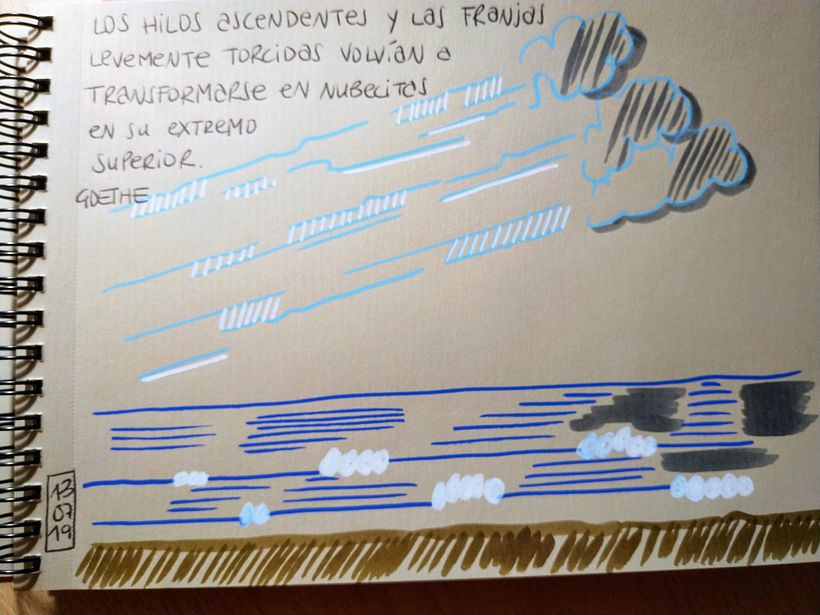 LOS HILOS ASCENDENTES Y LAS FRANJAS
LEVEMENTE TORCIDAS VOLVÍAN A
TRANSFORMARSE EN NUBECITAS
EN SU EXTREMO
SUPERIOR.
GOETHE
13
07
19